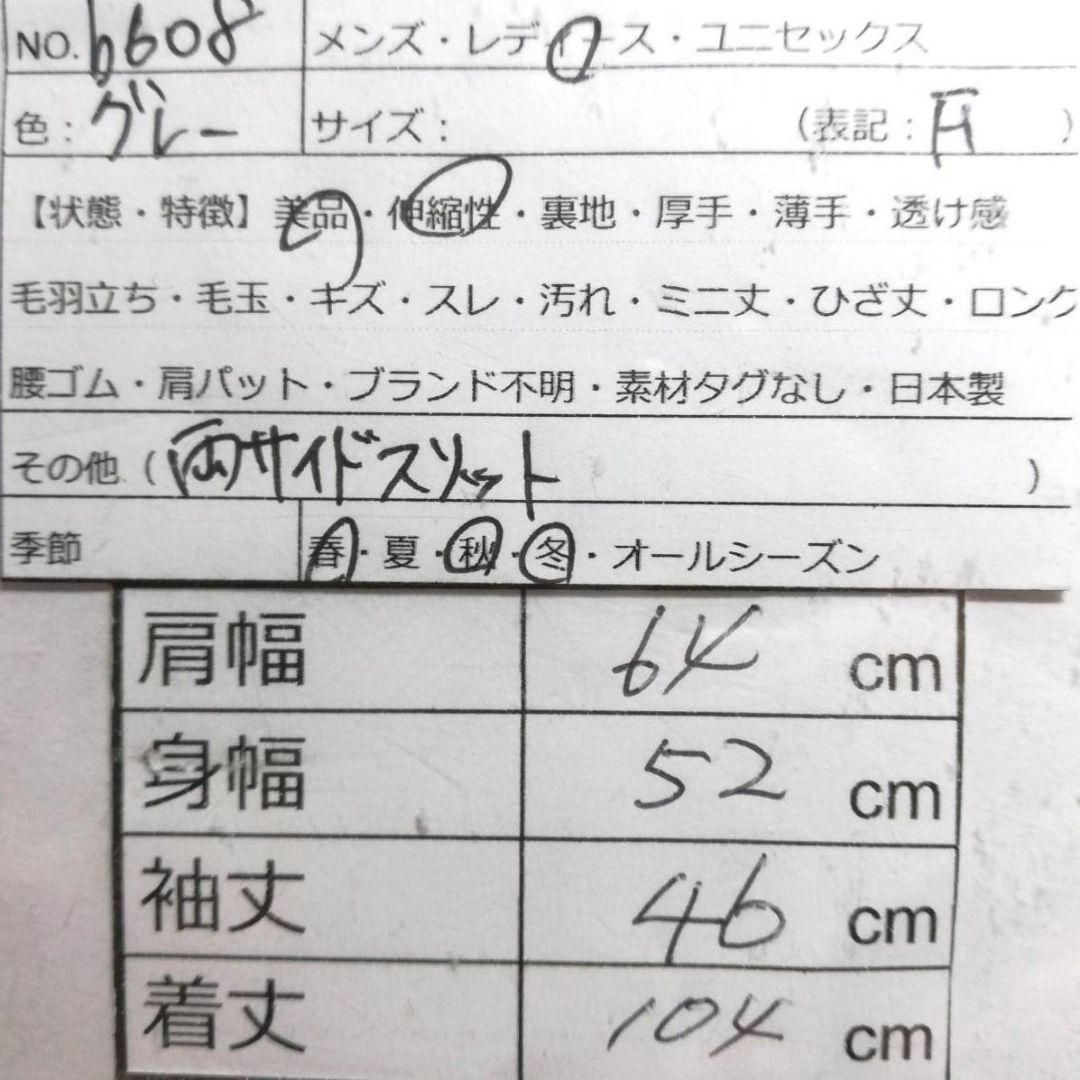 NO. 6608 メンズ・レディース・ユニセックス
色：グレー サイズ： （表記：F）
【状態・特徴】美品・伸縮性・裏地・厚手・薄手・透け感
毛羽立ち・毛玉・キズ・スレ・汚れ・ミニ丈・ひざ丈・ロング
腰ゴム・肩パット・ブランド不明・素材タグなし・日本製
その他（両サイドスリット）
季節 春・夏・秋・冬・オールシーズン
肩幅 64 cm
身幅 52 cm
袖丈 46 cm
着丈 104 cm